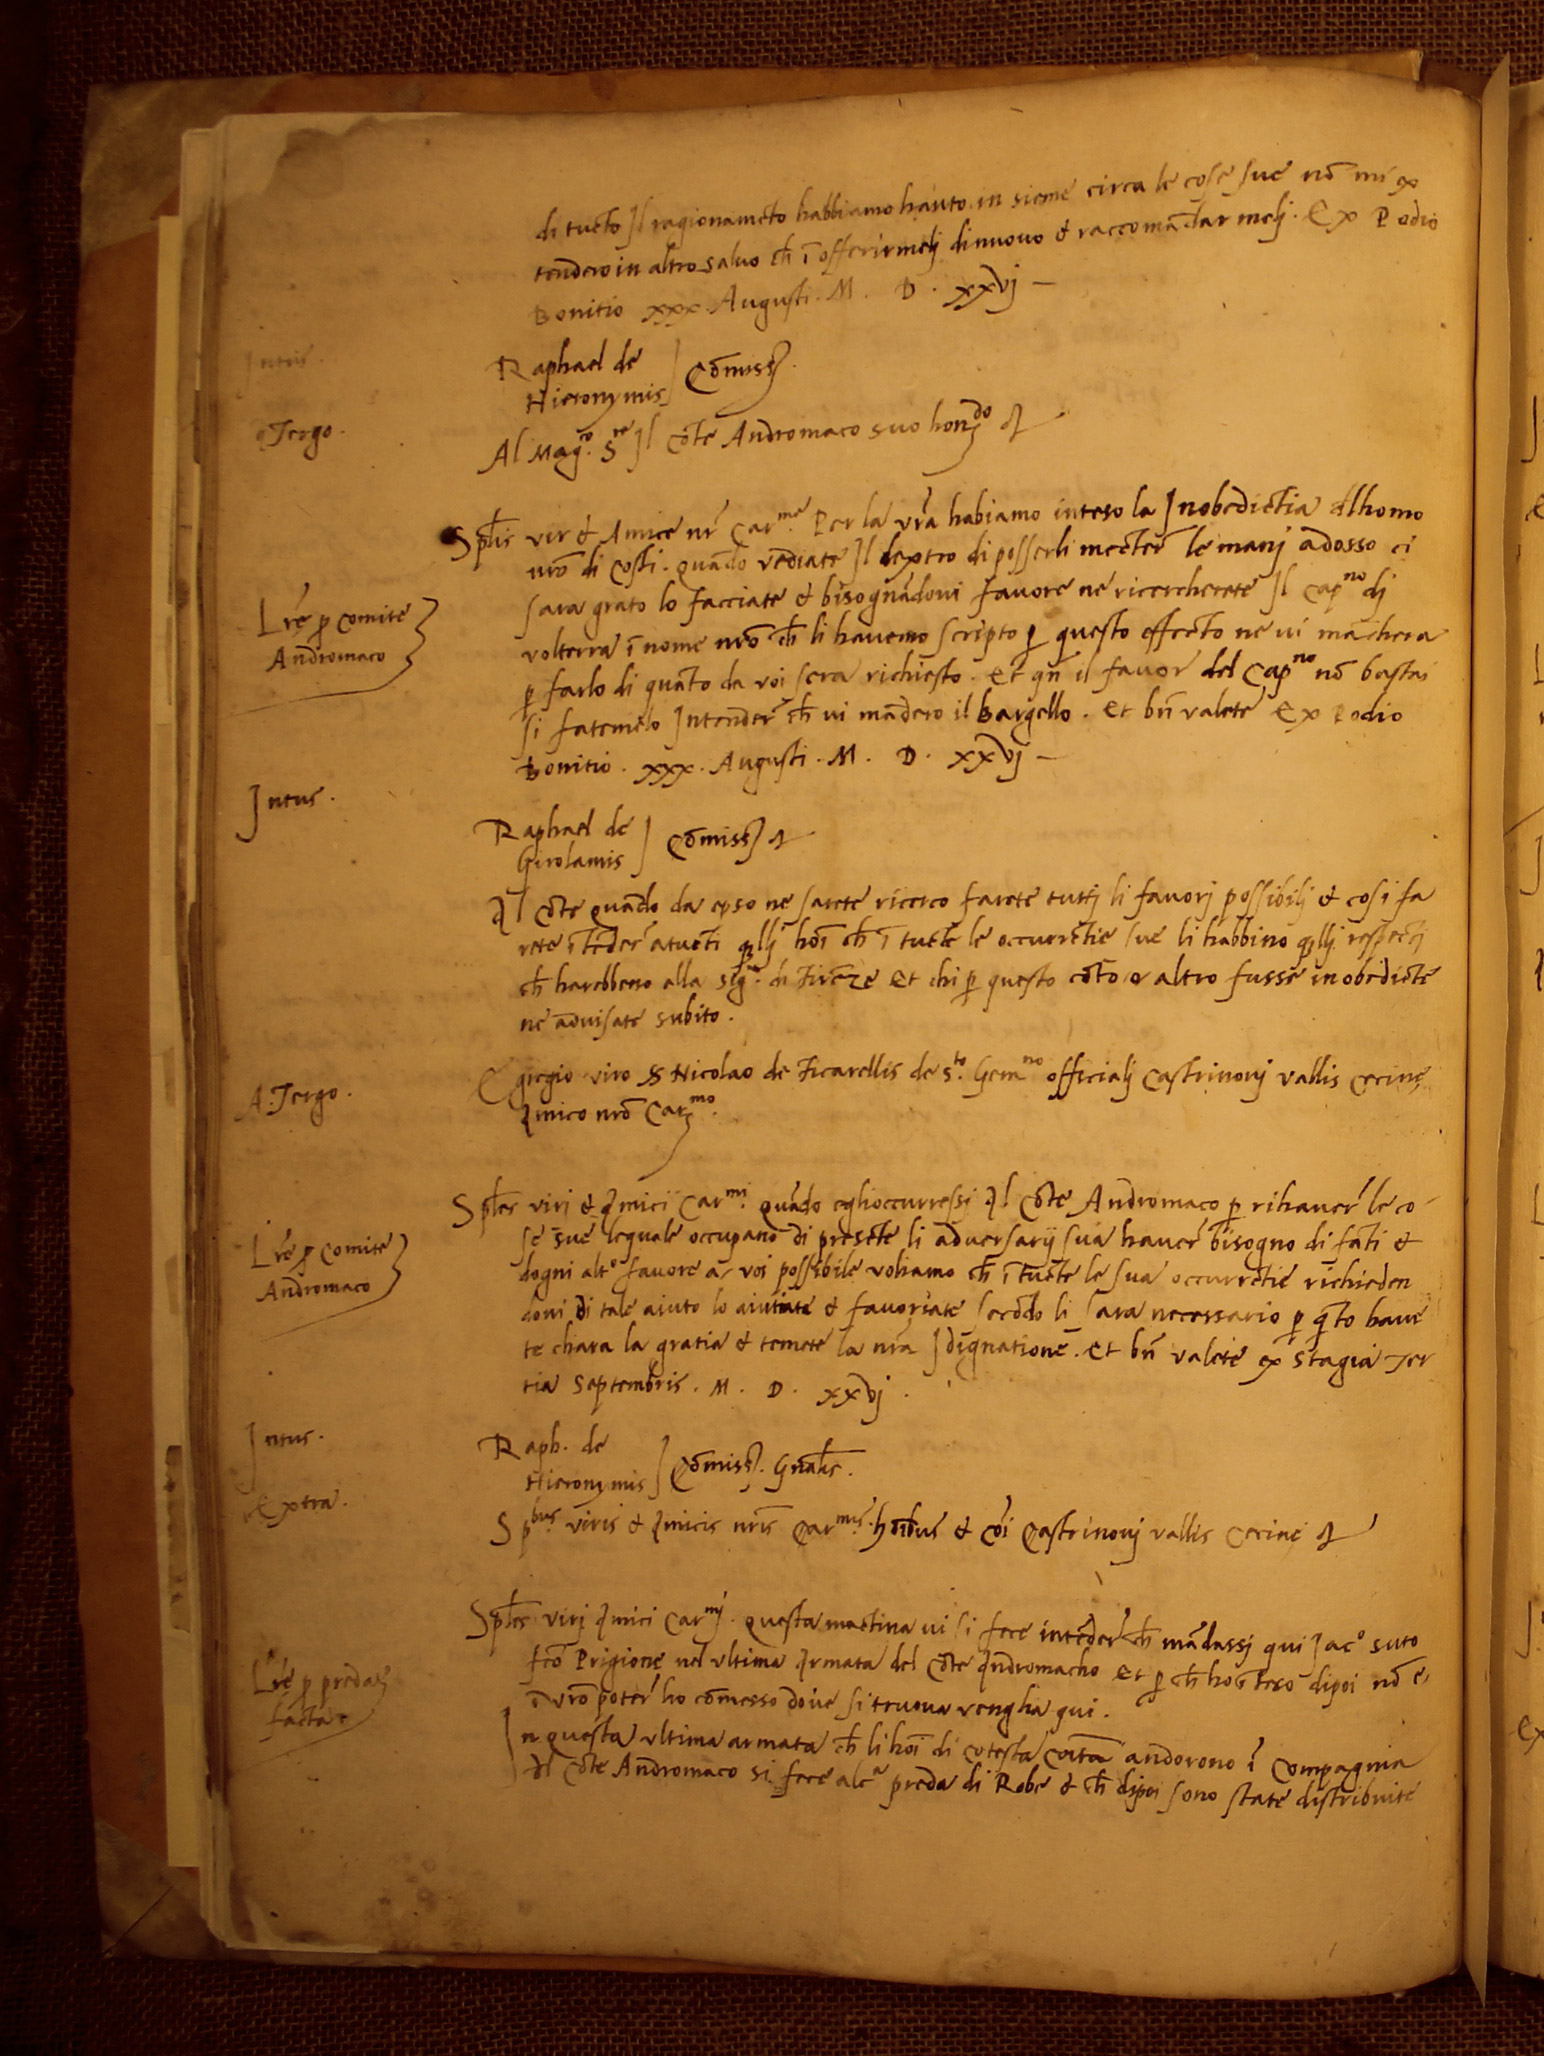 di tucto Il ragionamēto habbiamo hauto in sieme circa le cose sue nō mi ex
tendero in altro salvo ch ī offerirmeli di nuovo & raccomādarmeli. Ex Podio
Bonitio xxx Augusti. M. D. xxvj
Intus.
Raphael de
Hieronymis Cōmiss.
A Tergo.
Al Mag.co S.re Il cōte Andromaco suo hon.do
Splis vir & Amice nr Car.me Per la vra habiamo inteso la Inobedietia dlhomo
vrō di costi. quādo vediate Il dextro di posserli mecter le manj adosso ci
sara grato lo facciate & bisognādovi favore ne ricercherete Il Cap.no dj
Lre p comite
Andromaco
volterra ī nome nrō ch li havemo scripto p questo effecto ne vi māchera
p farlo di quāto da voi sera richiesto. Et qn il favor del Cap.no nō bastas
si fatemelo Intender ch vi mādero il Bargello. Et bn valete Ex Podio
Bonitio. xxx. Augusti. M. D. xxvj
Intus.
Raphael de
Girolamis Cōmiss
Al cōte quādo da epso ne sarete ricerco farete tuttj li favorj possibilj & cosi fa
rete ītēder a tucti qllj hoī ch ī tucte le occurrētie sue li habbino qllj respectj
ch harebbeno alla Sig. di Firēze Et chi p questo cōto o altro fusse inobediēte
ne advisate subito.
A. Tergo.
Egregio viro S Nicolao de Ficarellis de S.to Gem.no officialj Castrinovj vallis cecine
Amico nrō Car.mo
Sples virj & Amici Car.mi quādo egli occurressi Al Cōte Andromaco p rihaver le co
se sue lequale occupano di presēte li adversarij sua haver bisogno di fāti &
Lre p comite
Andromaco
dogni alt.o favore a voi possibile voliamo ch ī tucte le sua occurrētie richieden
dovi di tale aiuto lo aiutiate & favoriate secōdo li sara necessario p q̄to have
te chara la gratia & temete la nrā Idignatione. Et bn valete ex Stagia Ter
tia Septembris. M. D. xxvj.
Intus.
Raph. de
Hieronymis Cōmiss. Gnalis.
Extra.
Sp.bus viris & Amicis nris Car.mis hoibus & cōi Castrinovj vallis Cecine
Sples virj Amici Car.mj. Questa mactina vi si fece intēder ch mādassj qui Jac.o suto
fcō Prigione nel ultima Armata del Cōte Andromacho Et p ch ho īteso dipoi nō e
Lre p preda
facta
ī vrō poter ho cōmesso dove si truova venghia qui.
In questa ultima armata ch li hoī di cotesta andorono ī compagnia
dl Cōte Andromaco si fece alc.a preda di Robe & ch dipoi sono state distribuite